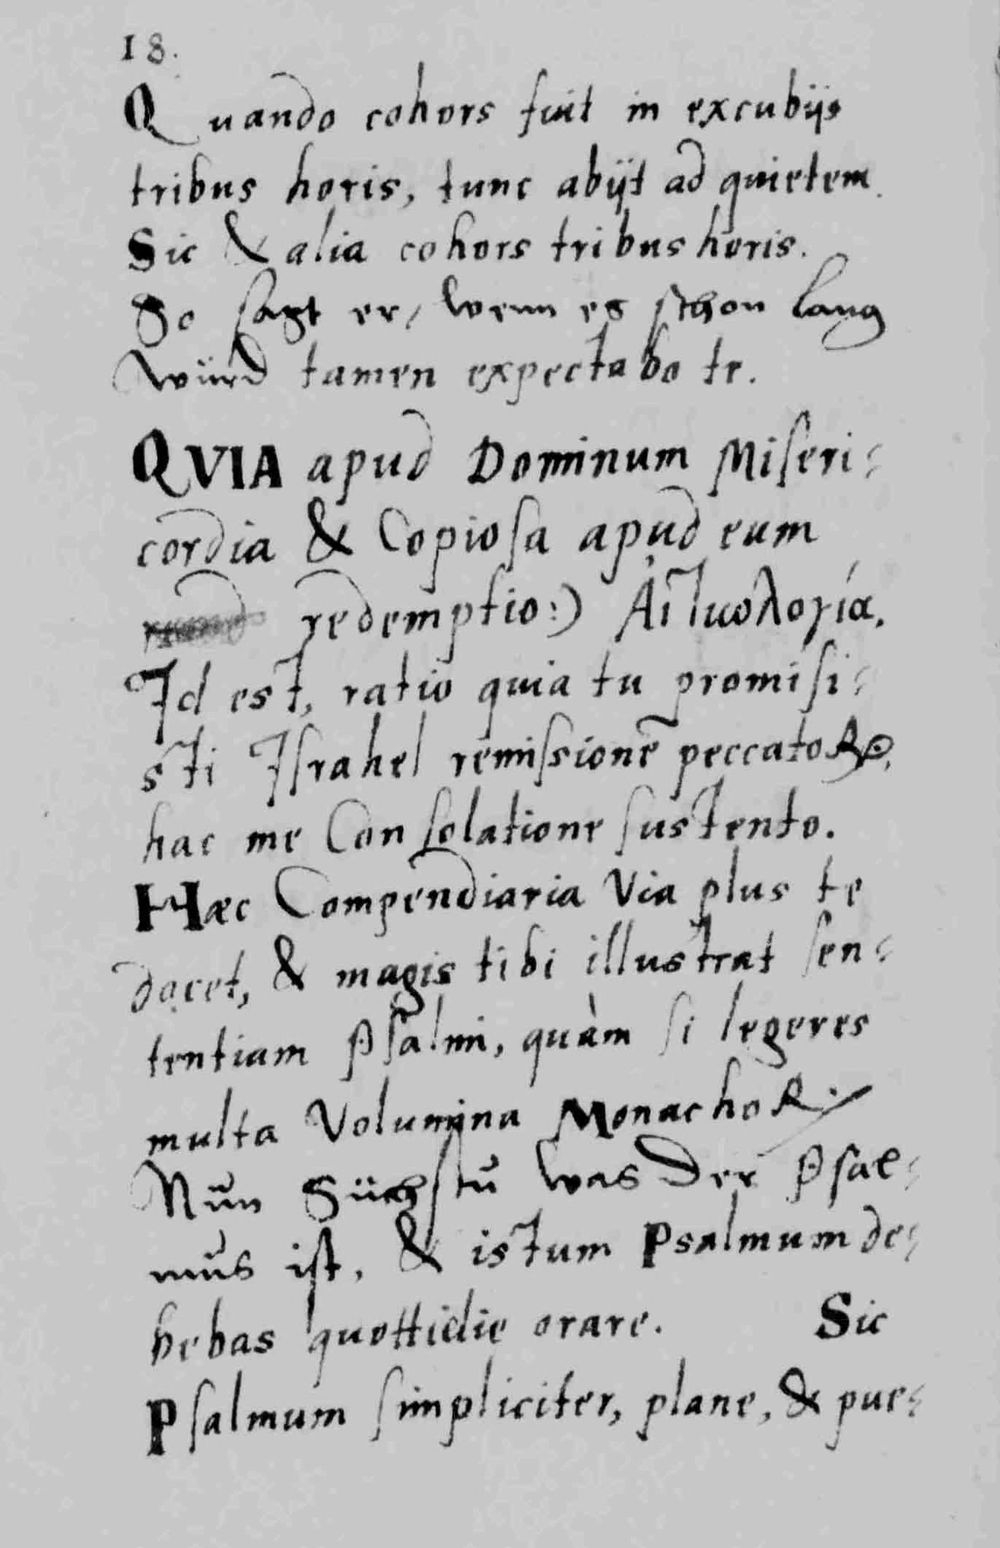 18.
Quando cohors fuit in excubijs
tribus horis, tunc abijt ad quietem.
Sic & alia cohors tribus horis.
So sagt er, wenn es schon lang
würd tamen expectabo te.
QVIA apud Dominum Miseri:
cordia & Copiosa apud eum
redemptio:) Αἰτιολογία.
Id est, ratio quia tu promisi:
sti Israhel remissionē peccatoꝝ.
hac me Consolatione sustento.
Hæc Compendiaria Via plus te
docet, & magis tibi illustrat sen:
tentiam Psalmi, quàm si legeres
multa Volumina Monachoꝝ.
Nun Sůchstu was der Psal:
mus ist, & istum Psalmum de:
bebas quottidie orare. Sic
Psalmum simpliciter, plane, & pue: